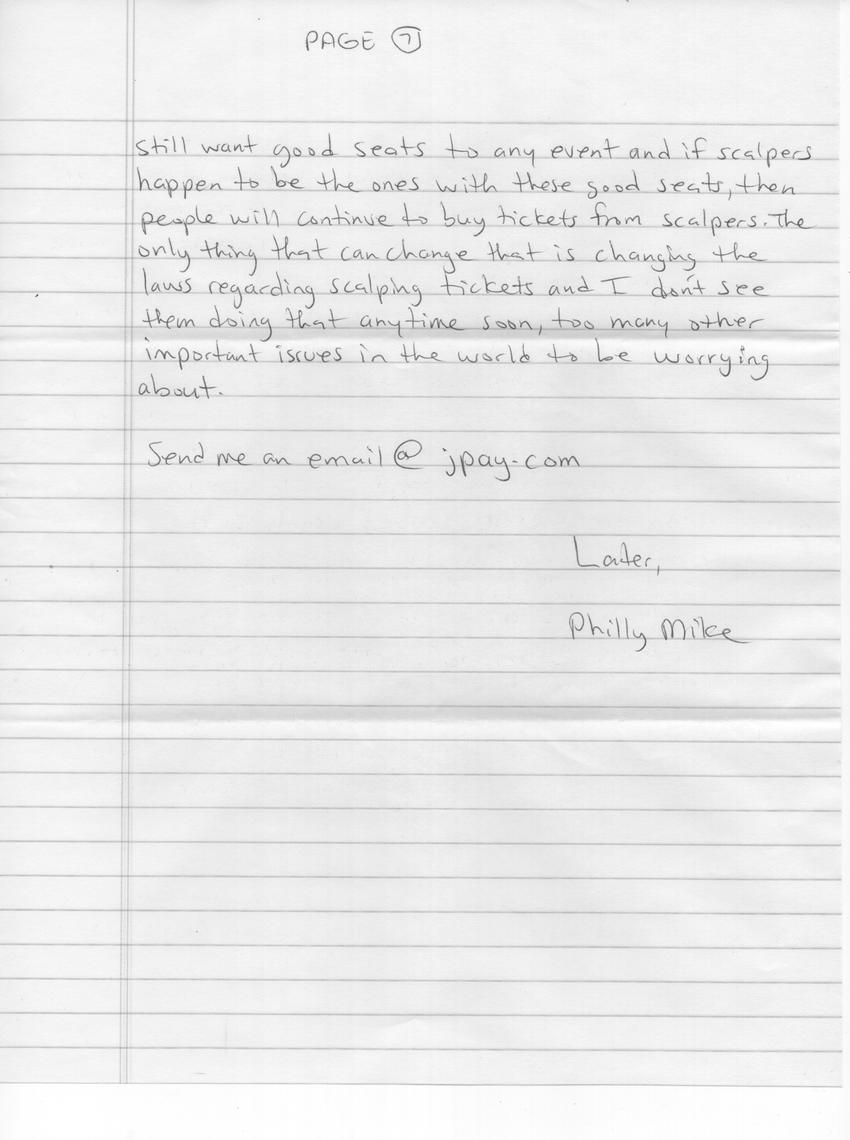 PAGE 7
still want good seats to any event and if scalpers
happen to be the ones with these good seats, then
people will continue to buy tickets from scalpers. The
only thing that can change that is changing the
laws regarding scalping tickets and I don't see
them doing that anytime soon, too many other
important issues in the world to be worrying
about.
Send me an email @ jpay.com
Later,
Philly Mike